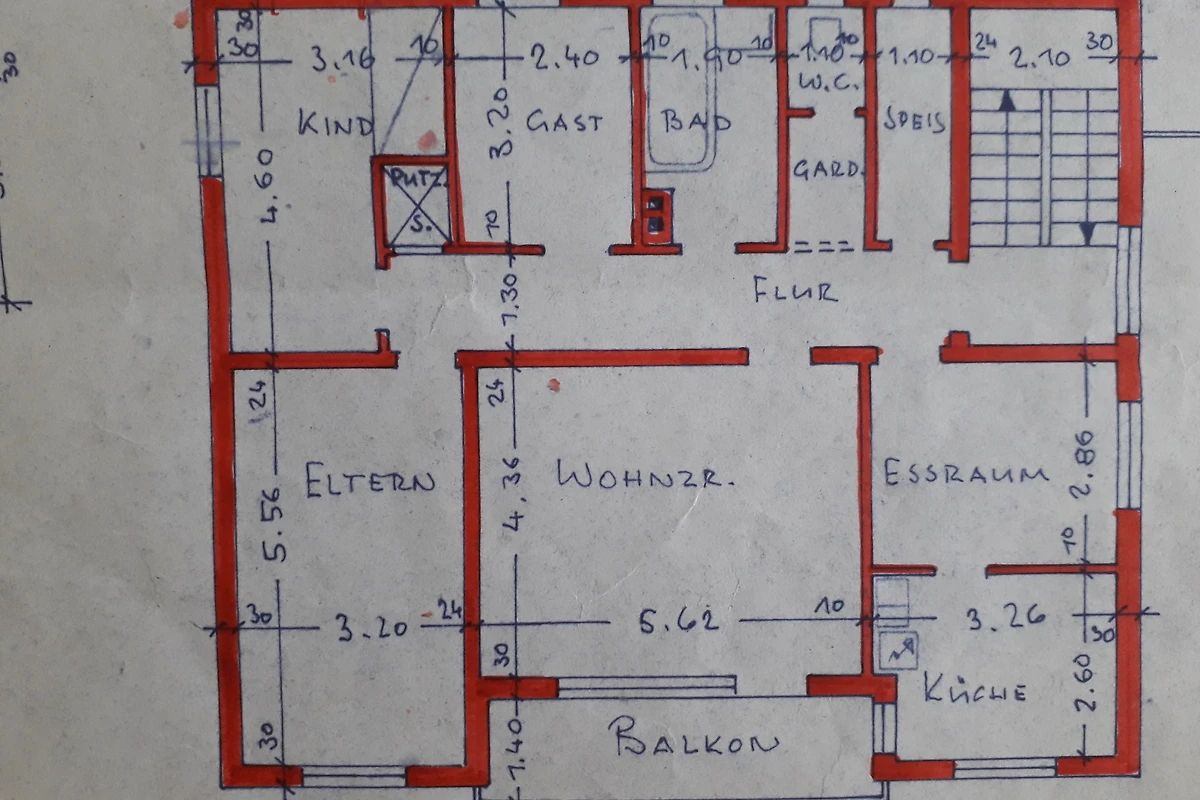 30
30
30
3.16
10
2.40
10
1.90
10
1.10
10
1.10
24
2.10
30
W.C.
KIND
3.20
GAST
BAD
SPEIS
4.60
PUTZ.
S.
GARD.
10
1.30
FLUR
24
24
ELTERN
5.56
4.36
WOHNZR.
ESSRAUM
2.86
10
30
3.20
24
5.62
10
3.26
30
30
30
KÜCHE
2.60
1.40
BALKON